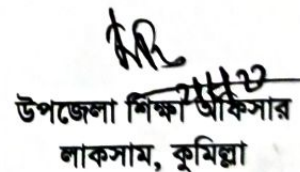 উপজেলা শিক্ষা অফিসার
লাকসাম, কুমিল্লা